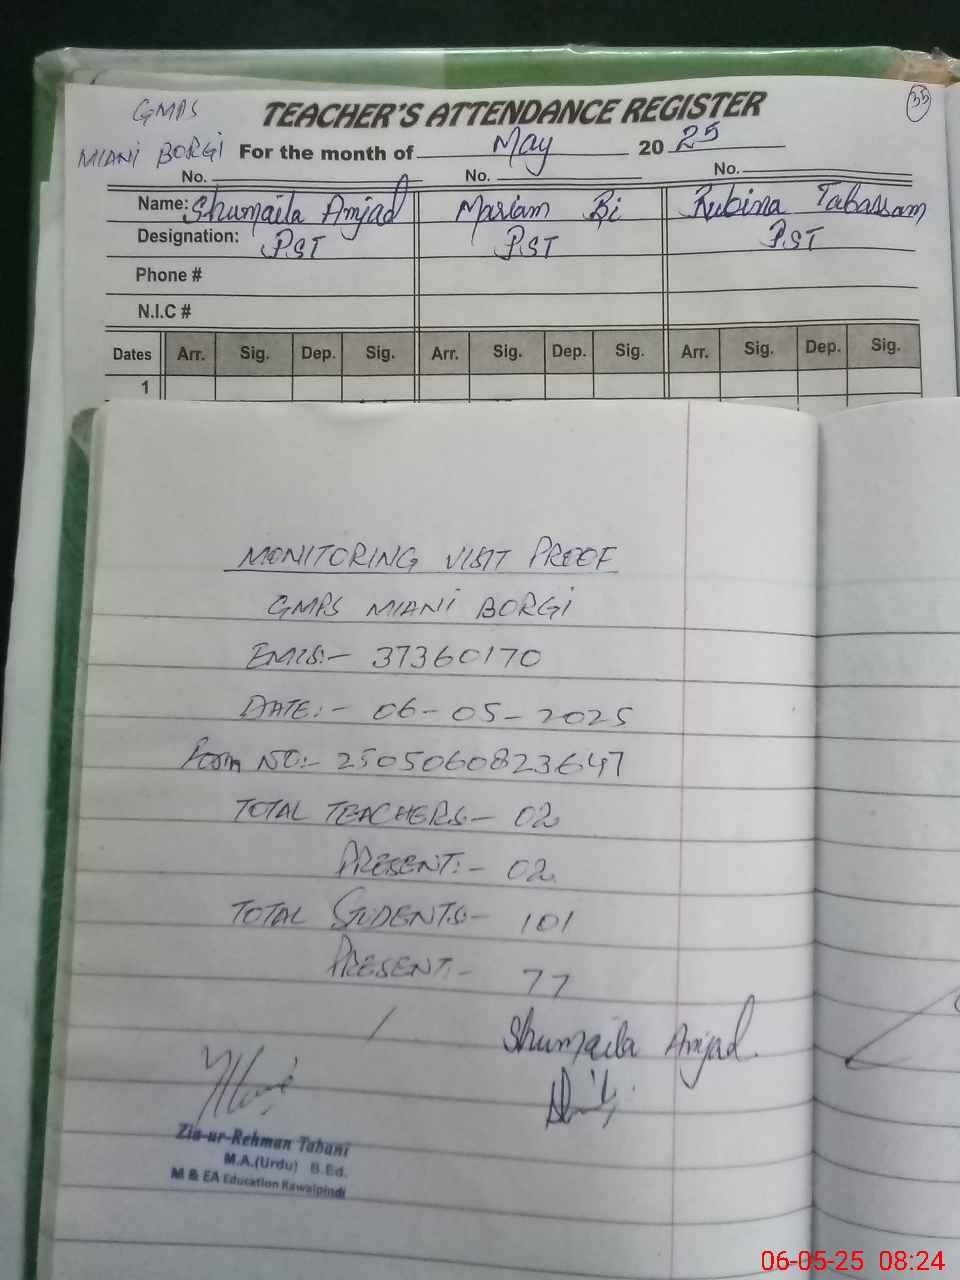 GMPS
TEACHER'S ATTENDANCE REGISTER
35
MIANI BORGI
For the month of May 2025
No. No. No.
Name: Shumaila Amjad Mariam Bi Rubina Tabassam
Designation: PST PST PST
Phone #
N.I.C #
Dates Arr. Sig. Dep. Sig. Arr. Sig. Dep. Sig. Arr. Sig. Dep. Sig.
1
MONITORING VISIT PROOF
GMPS MIANI BORGI
EMIS:- 37360170
DATE:- 06-05-2025
Form NO:- 2505060823647
TOTAL TEACHERS:- 02
PRESENT:- 02
TOTAL STUDENTS:- 101
PRESENT:- 77
Shumaila Amjad
Zia-ur-Rehman Tabani
M.A.(Urdu) B.Ed.
M & EA Education Rawalpindi
06-05-25 08:24